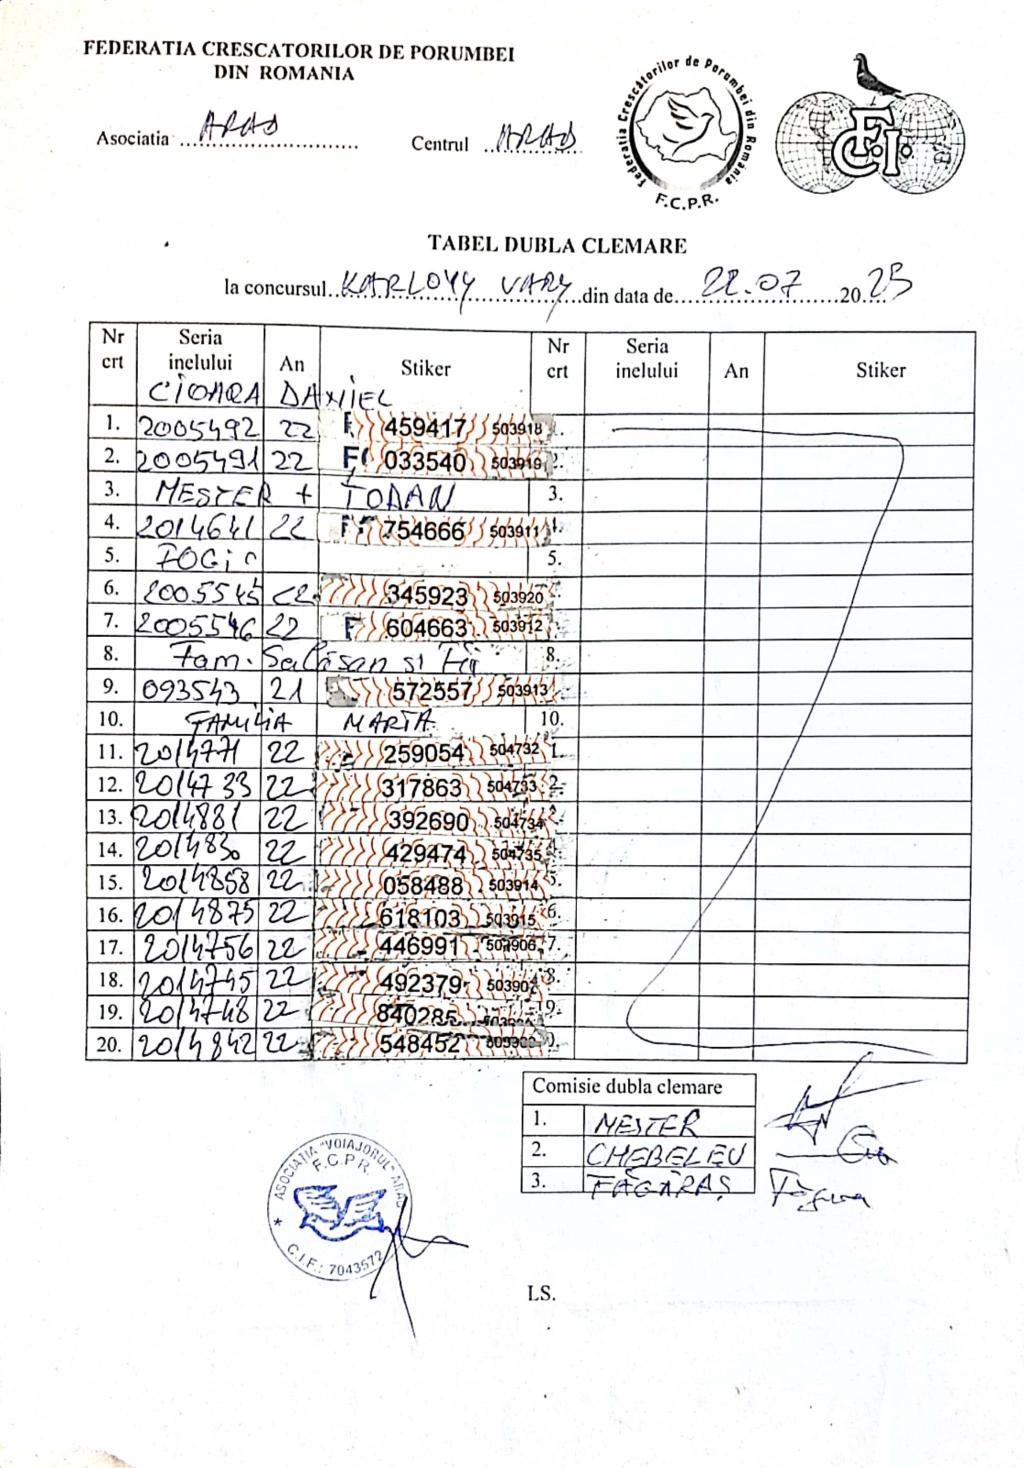 FEDERATIA CRESCATORILOR DE PORUMBEI
DIN ROMANIA
Asociatia ARAD
Centrul ARAD
Federatia Crescătorilor de Porumbei din România
F.C.P.R.
F.C.I.
TABEL DUBLA CLEMARE
la concursul KARLOVY VARY din data de 22.07 2023
Nr crt Seria inelului An Stiker Nr crt Seria inelului An Stiker
CIOARA DANIEL
1. 2005492 22 F 459417 503918
2. 2005491 22 F 033540 503919 2.
3. MESTER + TODAN 3.
4. 2014641 22 F 754666 503911
5. 5.
6. 2005545 22 345923 503920
7. 2005546 22 F 604663 503912
8. Fam. și Fii 8.
9. 093543 21 572557 503913
10. FAMILIA MARTA 10.
11. 2014771 22 259054 504732 1.
12. 2014733 22 317863 504733 2.
13. 2014881 22 392690 504734
14. 2014830 22 429474 504735
15. 2014858 22 058488 503914 5.
16. 2014875 22 618103 503915 6.
17. 2014756 22 446991 503906 7.
18. 2014745 22 492379 8.
19. 2014748 22 840285 9.
20. 2014842 22 548452 0.
Comisie dubla clemare
1. MESTER
2. CHEBELEU
3. FĂGĂRAȘ
ASOCIATIA "VOIAJORUL" ARAD
F.C.P.R.
C.I.F.: 7043572
LS.